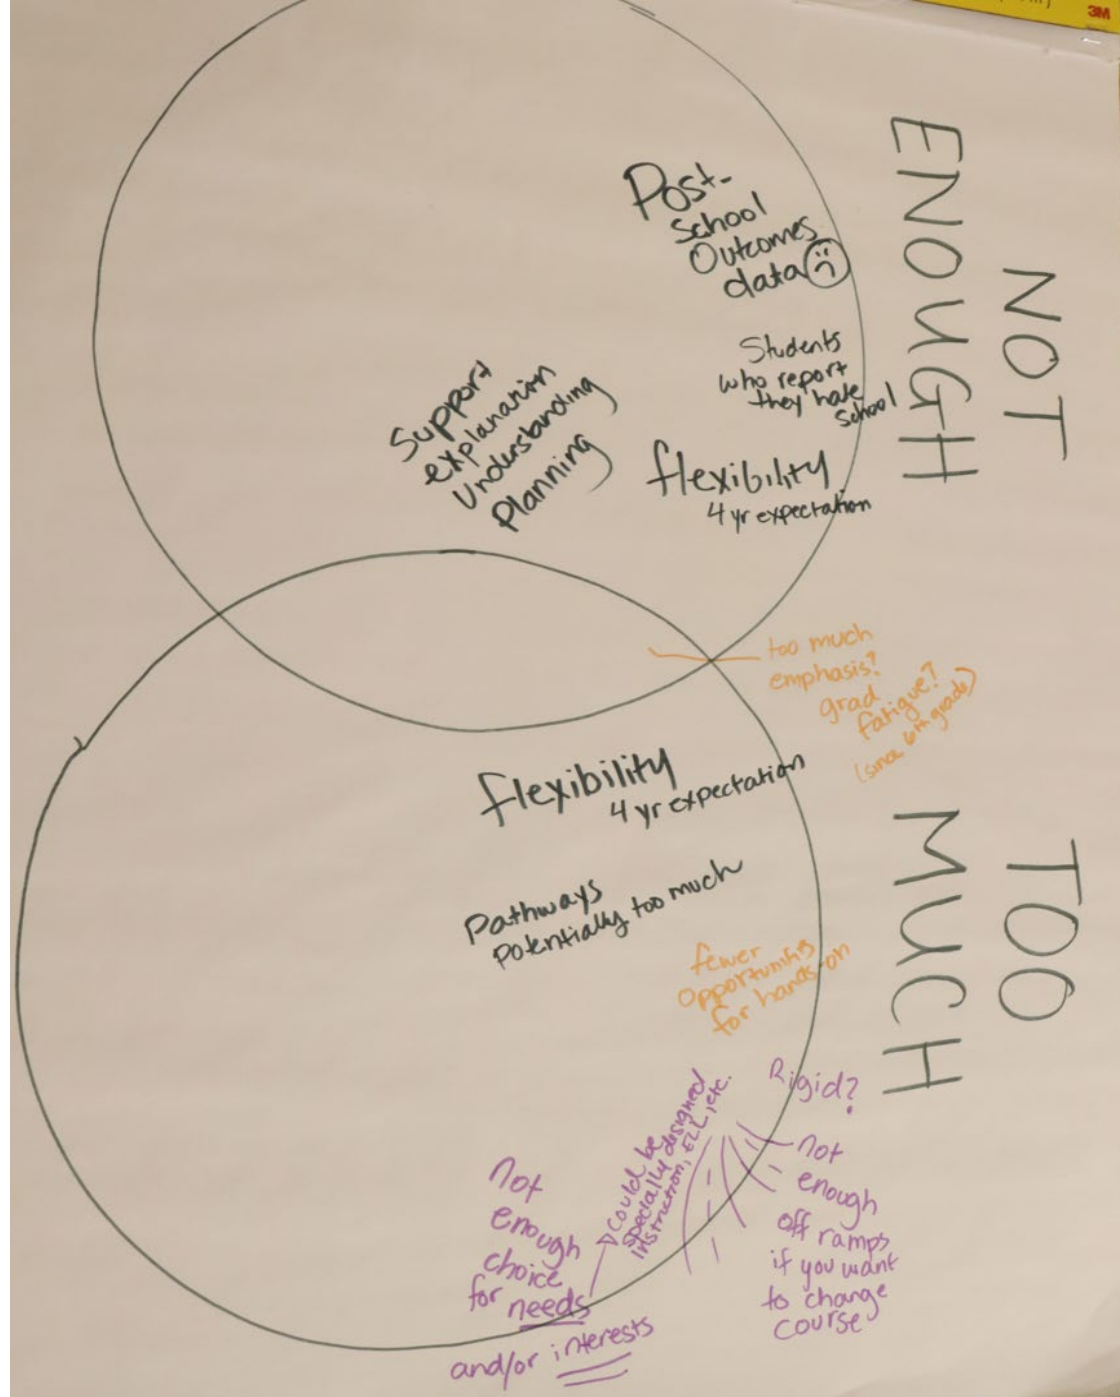 3M
NOT
ENOUGH
Post-
School
Outcomes
data
Students
who report
they hate
school
flexibility
4 yr expectation
Support
explanation
Understanding
Planning
too much
emphasis?
grad
fatigue?
(since 6th grade)
TOO
MUCH
flexibility
4 yr expectation
Pathways
potentially too much
fewer
opportunities
for hands-on
Rigid?
not
enough
off ramps
if you want
to change
course
Could be
specially designed
instruction, ELL, etc.
Not
enough
choice
for needs
and/or interests